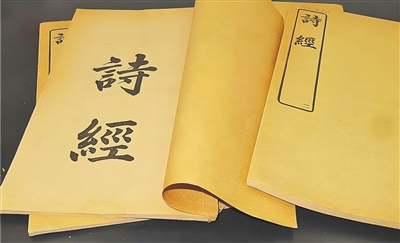 詩
經
詩經
二
詩